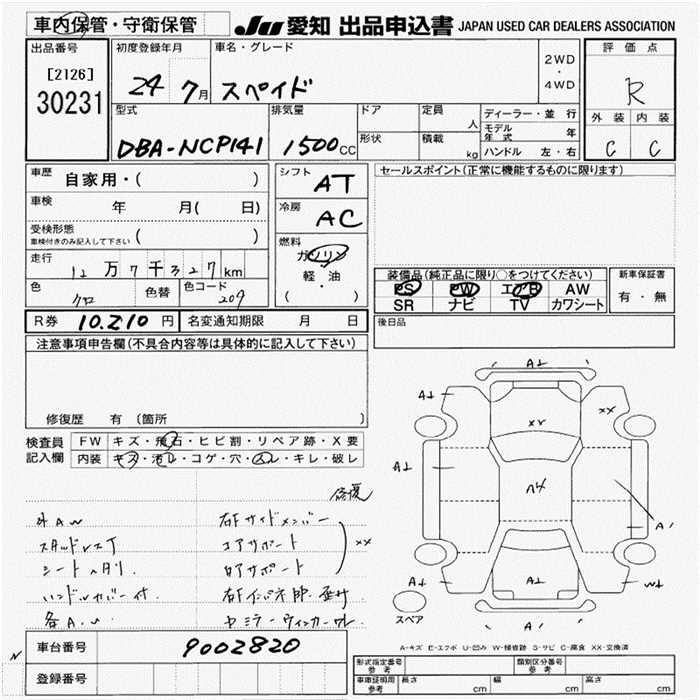 車内保管・守衛保管
JU 愛知 出品申込書 JAPAN USED CAR DEALERS ASSOCIATION
出品番号
[2126]
30231
初度登録年月
24 7月
車名・グレード
スペイド
2WD
・
4WD
評価点
R
外装 内装
C C
型式
DBA-NCP141
排気量
1500cc
ドア
形状
定員
人
積載
kg
ディーラー・並行
モデル年式 年
ハンドル 左・右
車歴
自家用・( )
車検
年 月(日)
受検形態
車検付きのみ記入して下さい ( )
走行
12万7千327km
色
クロ
色替
色コード
209
シフト
AT
冷房
AC
燃料
ガソリン
・
軽・油
( )
セールスポイント(正常に機能するものに限ります)
装備品(純正品に限り○をつけてください)
PS PW エアB AW
SR ナビ TV カワシート
新車保証書
有・無
R券 10,210円
名変通知期限 月 日
後日品
注意事項申告欄(不具合内容等は具体的に記入して下さい)
修復歴 有 (箇所 )
検査員
記入欄
FW キズ・飛石・ヒビ割・リペア跡・X要
内装 キズ・汚レ・コゲ・穴・スレ・キレ・破レ
修復
外AW
スタッドレスT
ハンドルカバー付
右Fサイドメンバー
コアサポート
XX
A1
A1
XX
XX
A1
A1
A1
A1
W1
A1
スペア
A-キズ E-エクボ U-凹み W-補修跡 S-サビ C-腐食 XX-交換済
車台番号
9002820
登録番号
N
形式指定番号
参考
類別区分番号
参考
車庫証明用
参考
長さ cm 幅 cm 高さ cm